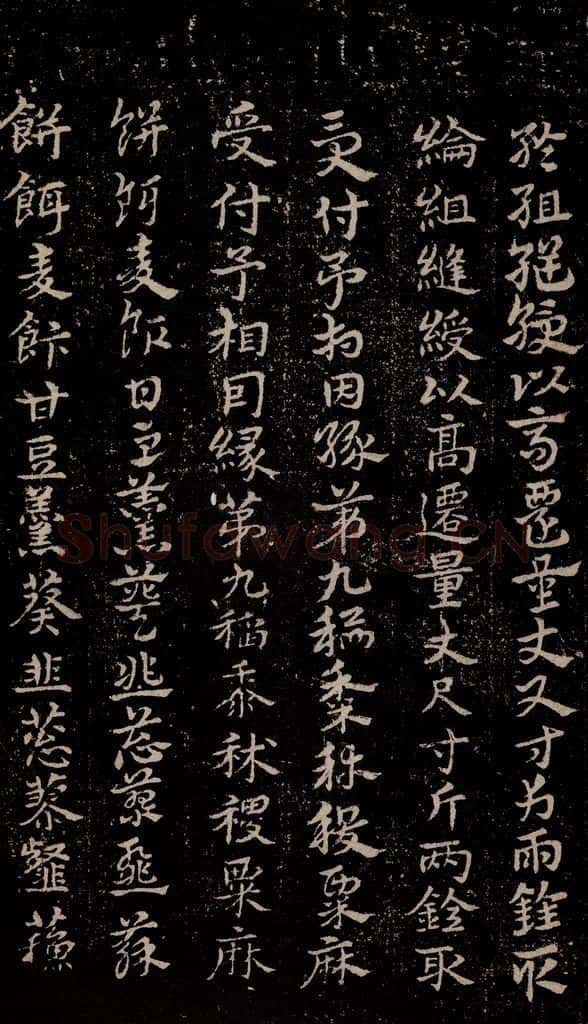 綸組縫綬以高遷量丈尺寸斤兩銓取
綸組縫綬以高遷量丈尺寸斤兩銓取
受付予相因緣第九稻黍秫稷粟麻
受付予相因緣第九稻黍秫稷粟麻
餅餌麦飯甘豆羹葵韭葱蓼韰蘇
餅餌麦飰甘豆羹葵韭葱蓼韰蘇
Shufawang.CN